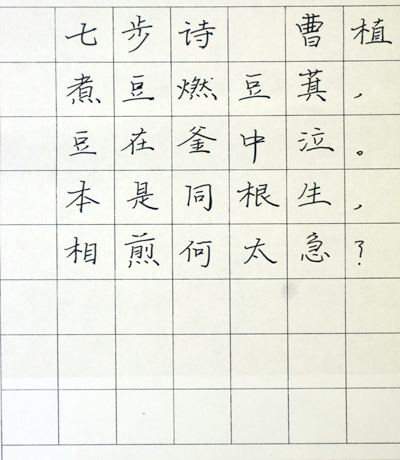 七步诗 曹植
煮豆燃豆萁，
豆在釜中泣。
本是同根生，
相煎何太急？